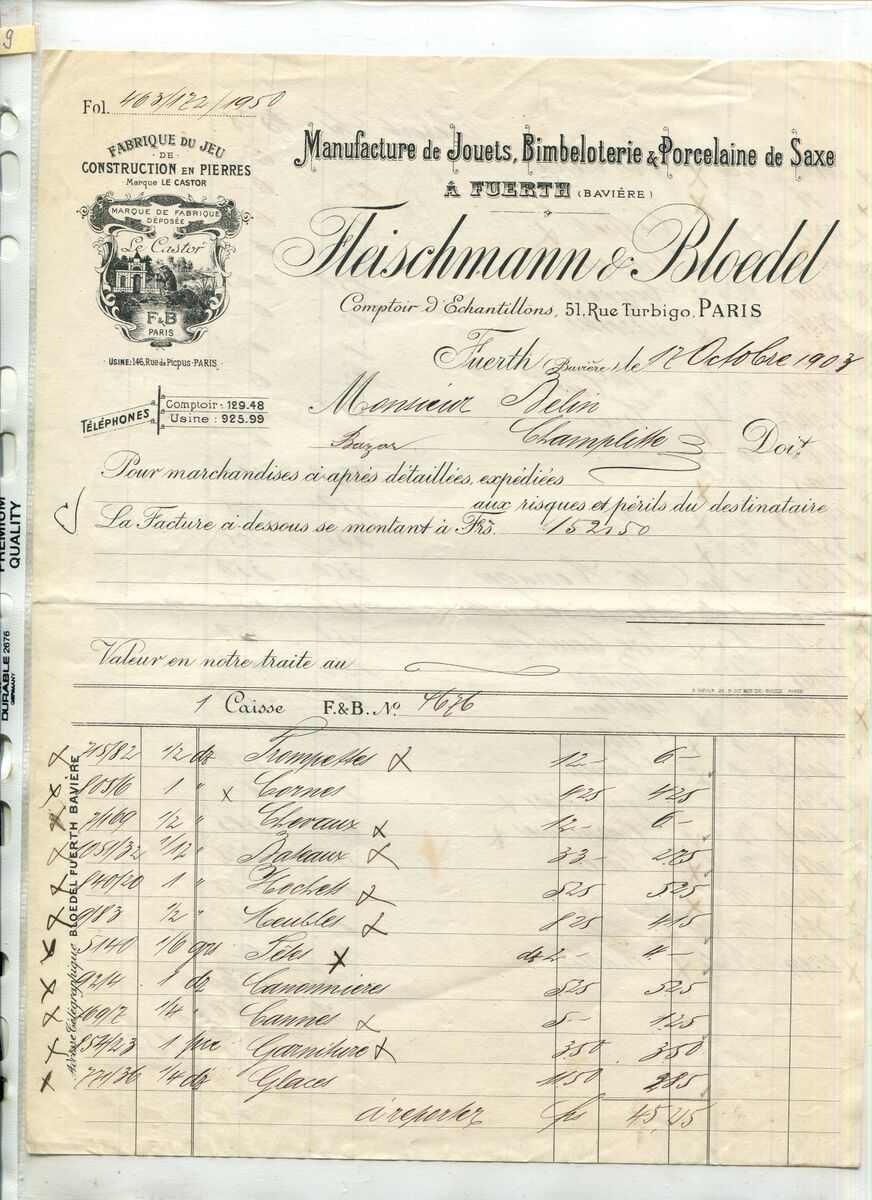 9
Fol. 463/172/1950
FABRIQUE DU JEU
· DE ·
CONSTRUCTION EN PIERRES
· Marque LE CASTOR
MARQUE DE FABRIQUE
DÉPOSÉE
Le Castor
F&B
PARIS
USINE: 146, Rue de Picpus · PARIS ·
TÉLÉPHONES
Comptoir : 129.48
Usine : 925.99
Manufacture de Jouets, Bimbeloterie & Porcelaine de Saxe
À FUERTH (BAVIÈRE)
Fleischmann & Bloedel
Comptoir d'Echantillons, 51, Rue Turbigo, PARIS
Fuerth (Bavière) le 17 Octobre 1903
Monsieur Bélin
Bazar Champlitte Doit
Pour marchandises ci-après détaillées, expédiées
aux risques et périls du destinataire
La Facture ci-dessous se montant à Frs. 152,50
Valeur en notre traite au
1 Caisse F.&B. No 4676
715/82 1/2 dz Trompettes 12.- 6.-
805/6 1 " Cornes 4 25 4 25
71169 1/2 " Chevaux 12.- 6.-
1051/32 1/12 " Bateaux 33.- 2.75
840/20 1 " Hochets 5 25 5 25
9183 1/2 " Meubles 8 25 4 15
5140 1/6 grs Têtes dz 2.- 4.-
92/4 1 dz Canonnieres 5 25 5 25
1/4 " Cannes 5.- 1.25
854/23 1 pce Garniture 3.50 3.50
771/36 1/4 dz Glaces 11 50 2 85
à reporter frs 45,25
Adresse Télégraphique BLOEDEL FUERTH BAVIÈRE
PREMIUM
QUALITY
DURABLE 2676
GERMANY